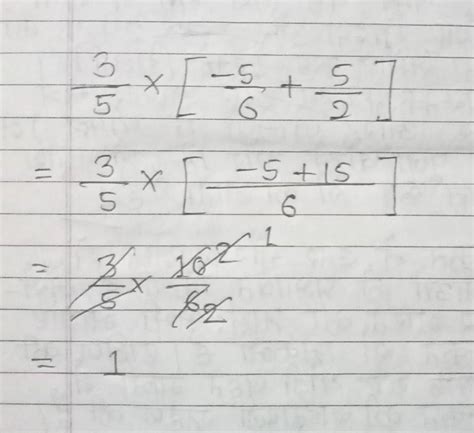 3/5 × [ -5/6 + 5/2 ]
= 3/5 × [ (-5 + 15)/6 ]
= 3/5 × 10/6 2 1 2
= 1